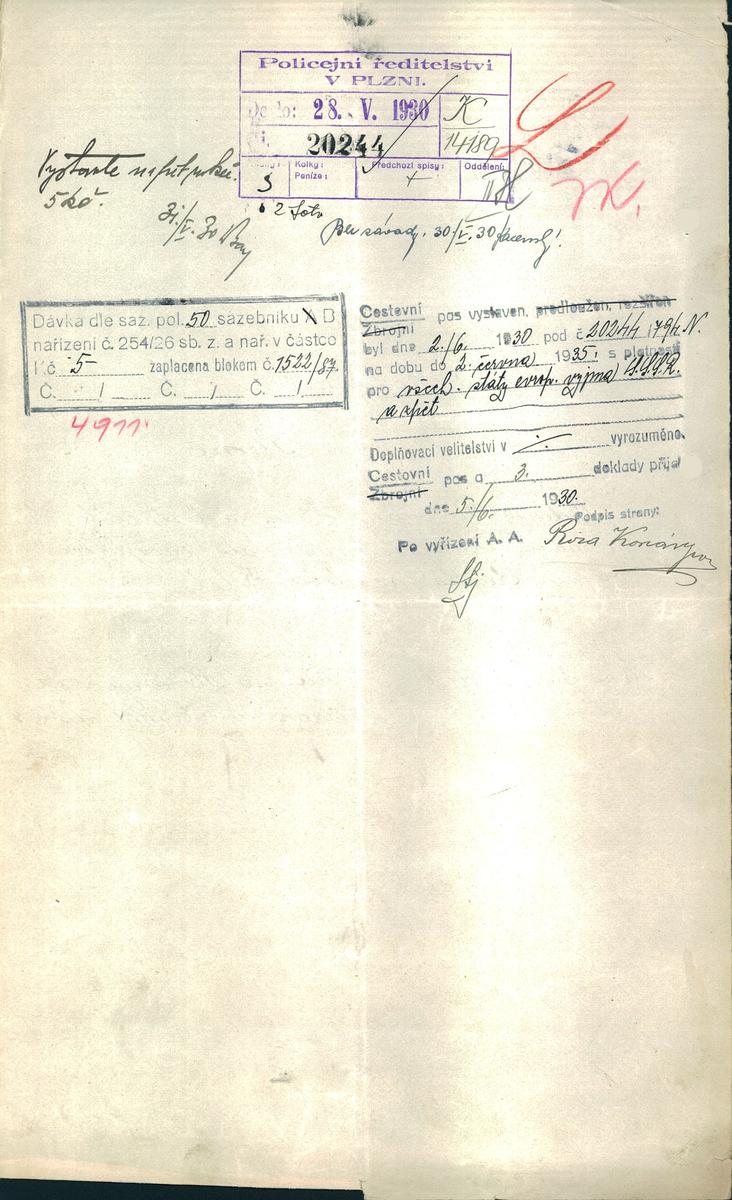 Policejní ředitelství
V PLZNI.
Došlo: 28. V. 1930
K
Čj. 20244
14189
Kolky:
Peníze:
Předchozí spisy:
Oddělení:
3
+
2 foto
Vystavte na pět roků.
5 Kč.
31./V. 30
Bez závady. 30/V. 30
Dávka dle saz. pol. 50 sazebníku A B
nařízení č. 254/26 sb. z. a nař. v částce
Kč 5- zaplacena blokem č. 1522/87
Č. / Č. / Č. /
4911.
Cestovní pas vystaven, predloužen, rozšířen
Zbrojní
byl dne 2./6. 1930 pod č 20244
na dobu do 2. června 1935. s platností
pro všech. státy evrop. vyjma S.S.S.R.
a zpět
Doplňovací velitelství v ·/· vyrozuměno.
Cestovní pas a 3. doklady přijal
Zbrojní
dne 5./6. 1930.
Podpis strany:
Po vyřízení A. A.